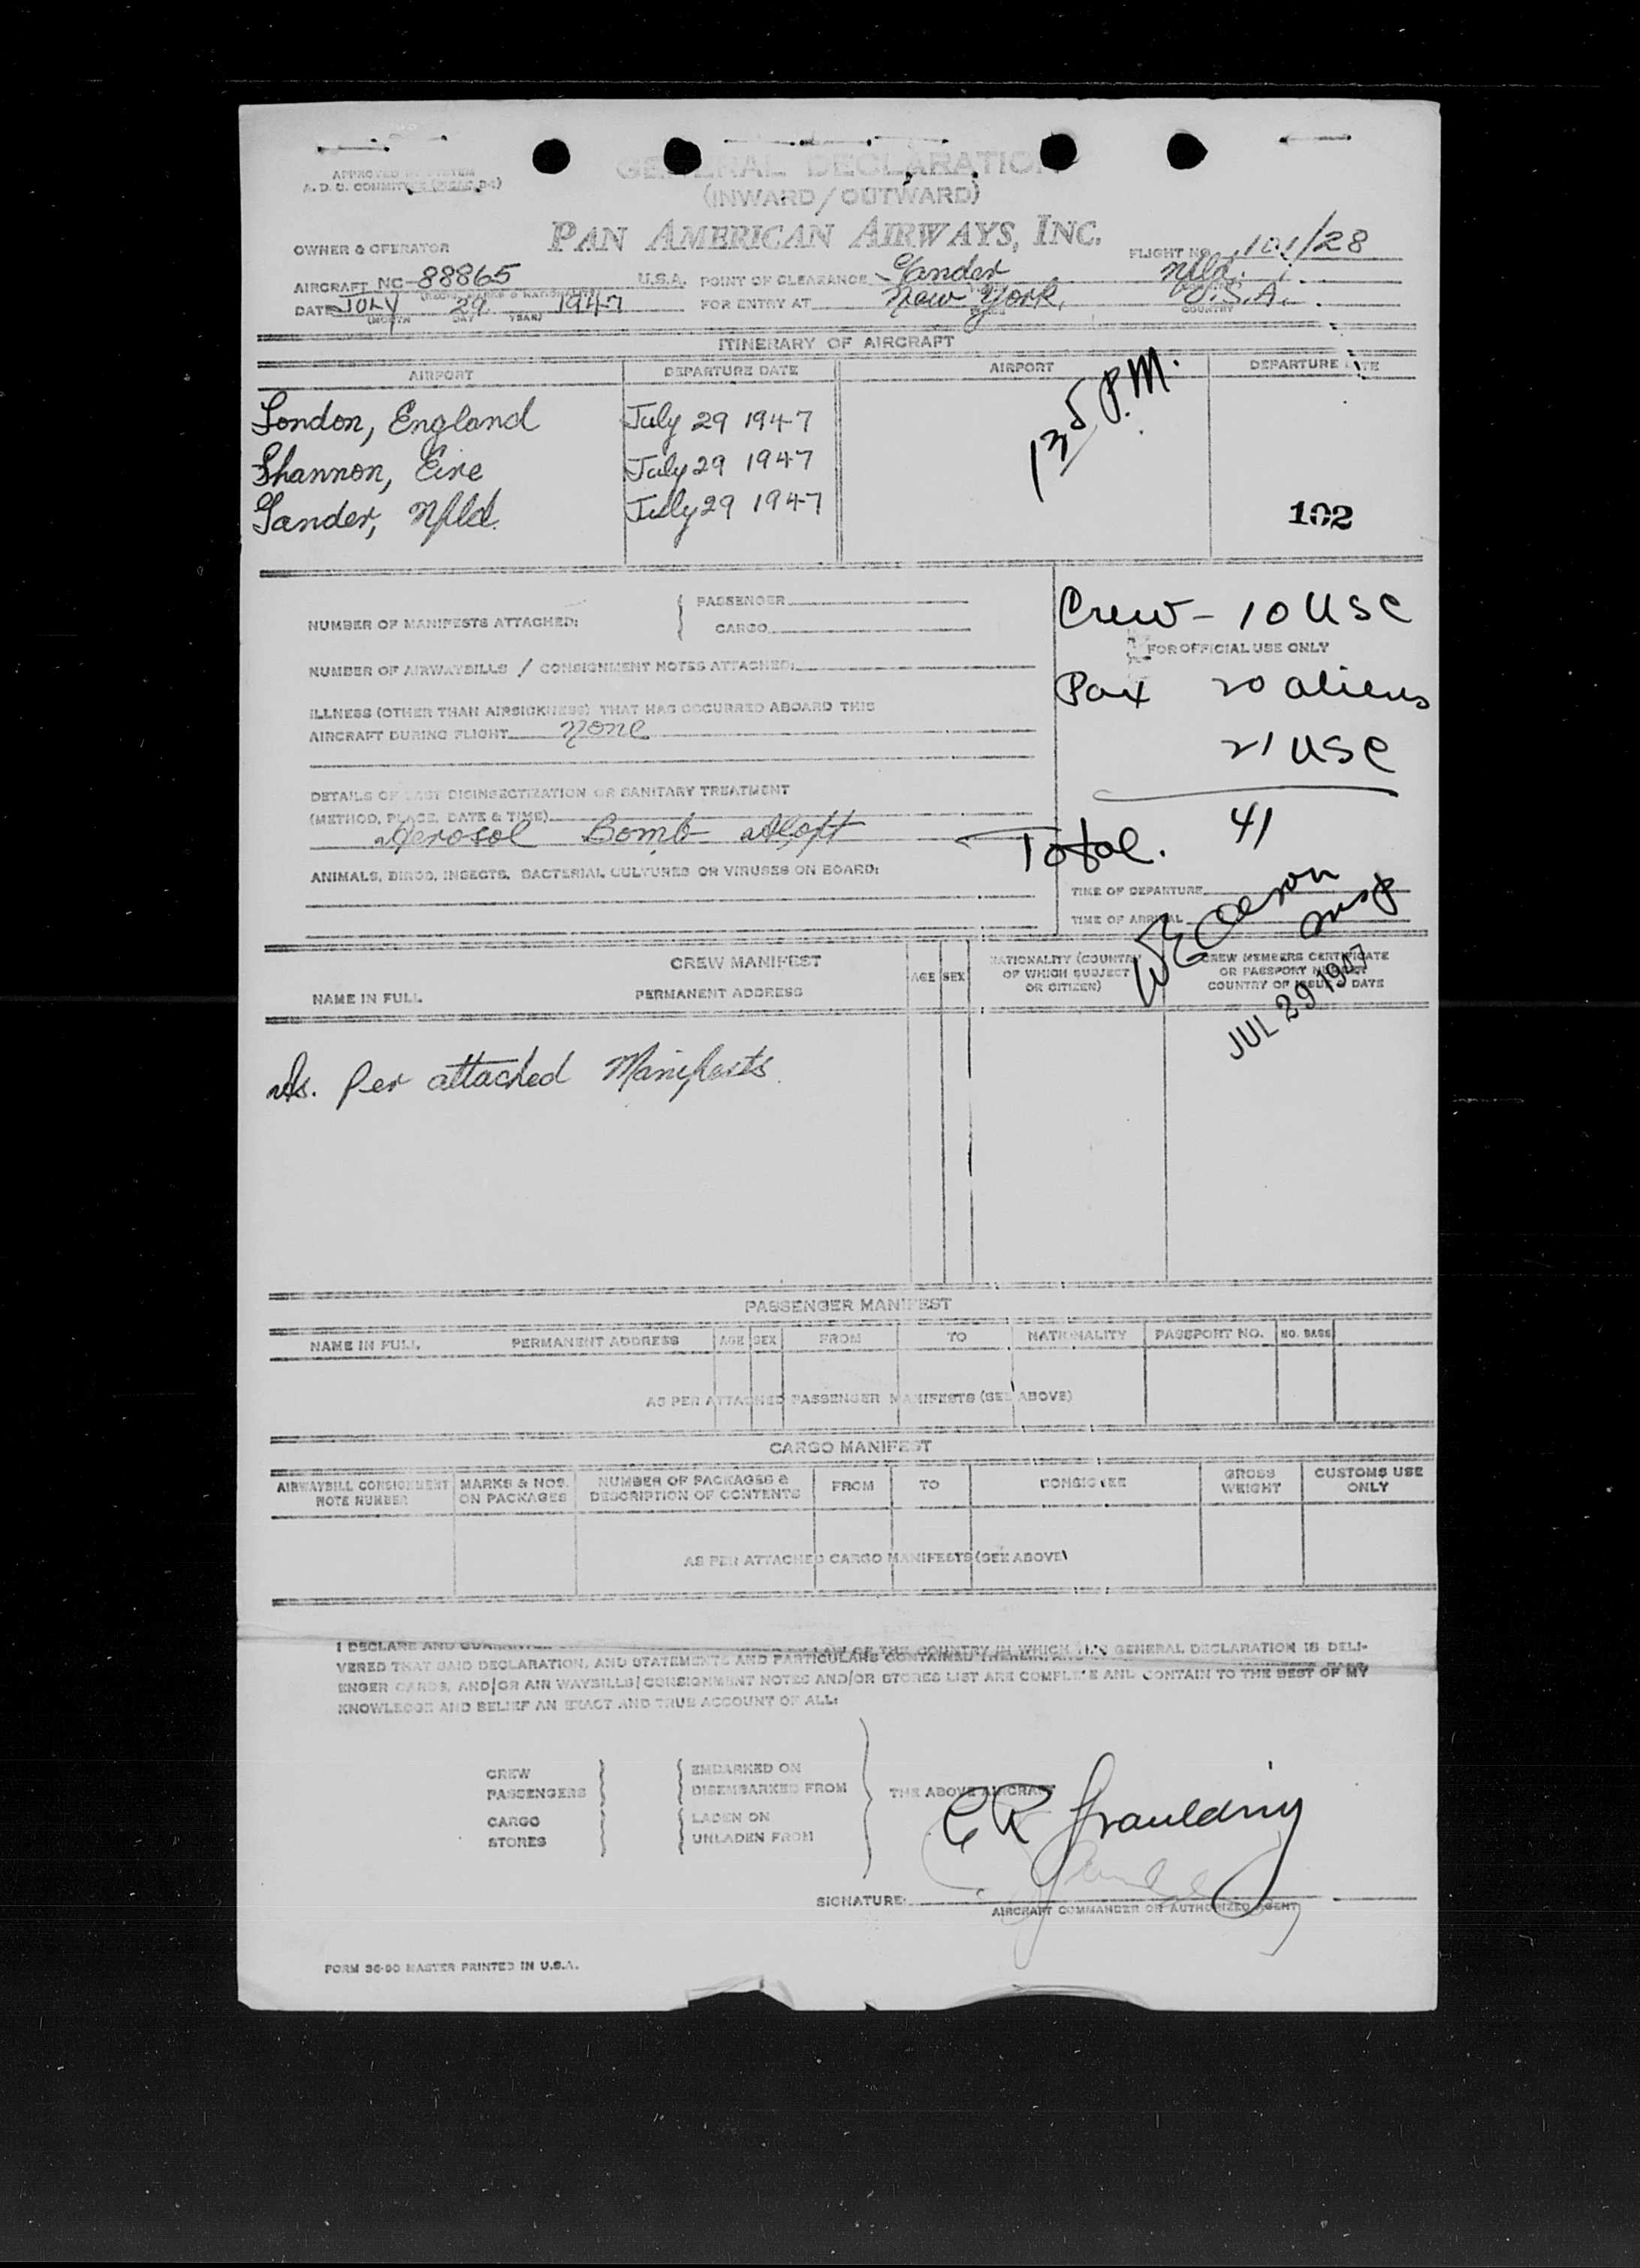 APPROVED BY SYSTEM
A. D. U. COMMITTEE
GENERAL DECLARATION
(INWARD/OUTWARD)
PAN AMERICAN AIRWAYS, INC.
OWNER & OPERATOR
FLIGHT NO. 101/28
AIRCRAFT NC-88865 U.S.A. POINT OF CLEARANCE Gander Nfld.
DATE JULY 29 1947 FOR ENTRY AT New York, U.S.A.
(MONTH DAY YEAR) COUNTRY
ITINERARY OF AIRCRAFT
AIRPORT DEPARTURE DATE AIRPORT DEPARTURE DATE
135 P.M.
London, England July 29 1947
Shannon, Eire July 29 1947
Gander, Nfld. July 29 1947
102
Crew - 10 USC
NUMBER OF MANIFESTS ATTACHED: { PASSENGER
CARGO
FOR OFFICIAL USE ONLY
NUMBER OF AIRWAYBILLS / CONSIGNMENT NOTES ATTACHED:
Pax 20 aliens
ILLNESS (OTHER THAN AIRSICKNESS) THAT HAS OCCURRED ABOARD THIS
AIRCRAFT DURING FLIGHT None
21 USC
DETAILS OF LAST DISINSECTIZATION OR SANITARY TREATMENT
(METHOD, PLACE, DATE & TIME)
Aerosol Bomb Aloft
Total. 41
ANIMALS, BIRDS, INSECTS, BACTERIAL CULTURES OR VIRUSES ON BOARD:
TIME OF DEPARTURE
TIME OF ARRIVAL
Insp
JUL 29 1947
CREW MANIFEST
NAME IN FULL PERMANENT ADDRESS AGE SEX NATIONALITY (COUNTRY OF WHICH SUBJECT OR CITIZEN) CREW MEMBERS CERTIFICATE OR PASSPORT NUMBER COUNTRY OF ISSUE & DATE
As. Per attached Manifests
PASSENGER MANIFEST
NAME IN FULL PERMANENT ADDRESS AGE SEX FROM TO NATIONALITY PASSPORT NO. NO. BAGS
AS PER ATTACHED PASSENGER MANIFESTS (SEE ABOVE)
CARGO MANIFEST
AIRWAYBILL CONSIGNMENT NOTE NUMBER MARKS & NOS. ON PACKAGES NUMBER OF PACKAGES & DESCRIPTION OF CONTENTS FROM TO CONSIGNEE GROSS WEIGHT CUSTOMS USE ONLY
AS PER ATTACHED CARGO MANIFESTS (SEE ABOVE)
I DECLARE AND LAW OF THE COUNTRY IN WHICH THIS GENERAL DECLARATION IS DELI-
VERED THAT SAID DECLARATION, AND STATEMENTS AND PARTICULARS CONTAINED THEREIN,
ENGER CARDS, AND/OR AIR WAYBILLS/CONSIGNMENT NOTES AND/OR STORES LIST ARE COMPLETE AND CONTAIN TO THE BEST OF MY
KNOWLEDGE AND BELIEF AN EXACT AND TRUE ACCOUNT OF ALL:
CREW EMBARKED ON
PASSENGERS DISEMBARKED FROM THE ABOVE AIRCRAFT
CARGO LADEN ON
STORES UNLADEN FROM
CR Spaulding
SIGNATURE:
AIRCRAFT COMMANDER OR AUTHORIZED AGENT
FORM 36-90 MASTER PRINTED IN U.S.A.